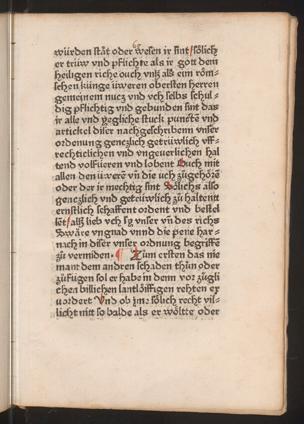 würden stät oder wesen ir sint sölich
er trüw vnd pflichte als ir gott dem
heiligen riche ouch vnß alß ein röm-
schen künge üweren obersten herren
gemeinem nucz vnd vch selbs schul-
dig pflichtig vnd gebunden sint das
ir alle vnd yegliche stuck puncte vnd
artickel diser nachgeschribenn vnser
ordenung genczlich getrüwlich vff-
rechticlichen vnd vngeuerlichen hal
tend volfüeren vnd lobent Ouch mit
allen den üwerē vñ die vch zugehöre
oder der ir mechtig sint Sölichs also
genczlich vnd getrüwlich zů haltenn
ernstlich schaffent ordent vnd bestel
lēt alß lieb vch sy vnser vñ des richs
swäre vngnad vnnd die pene har-
nach in diser vnser ordnung begriffē
zů vermiden ¶ Zum ersten das nie
mant dem andren schaden thün oder
zufügen sol er habe in dem vor zugü
chen billichen lantlöiffigen rehten er
uordert Vnd ob im sölich recht vil-
licht nitt so balde als er wöltte oder